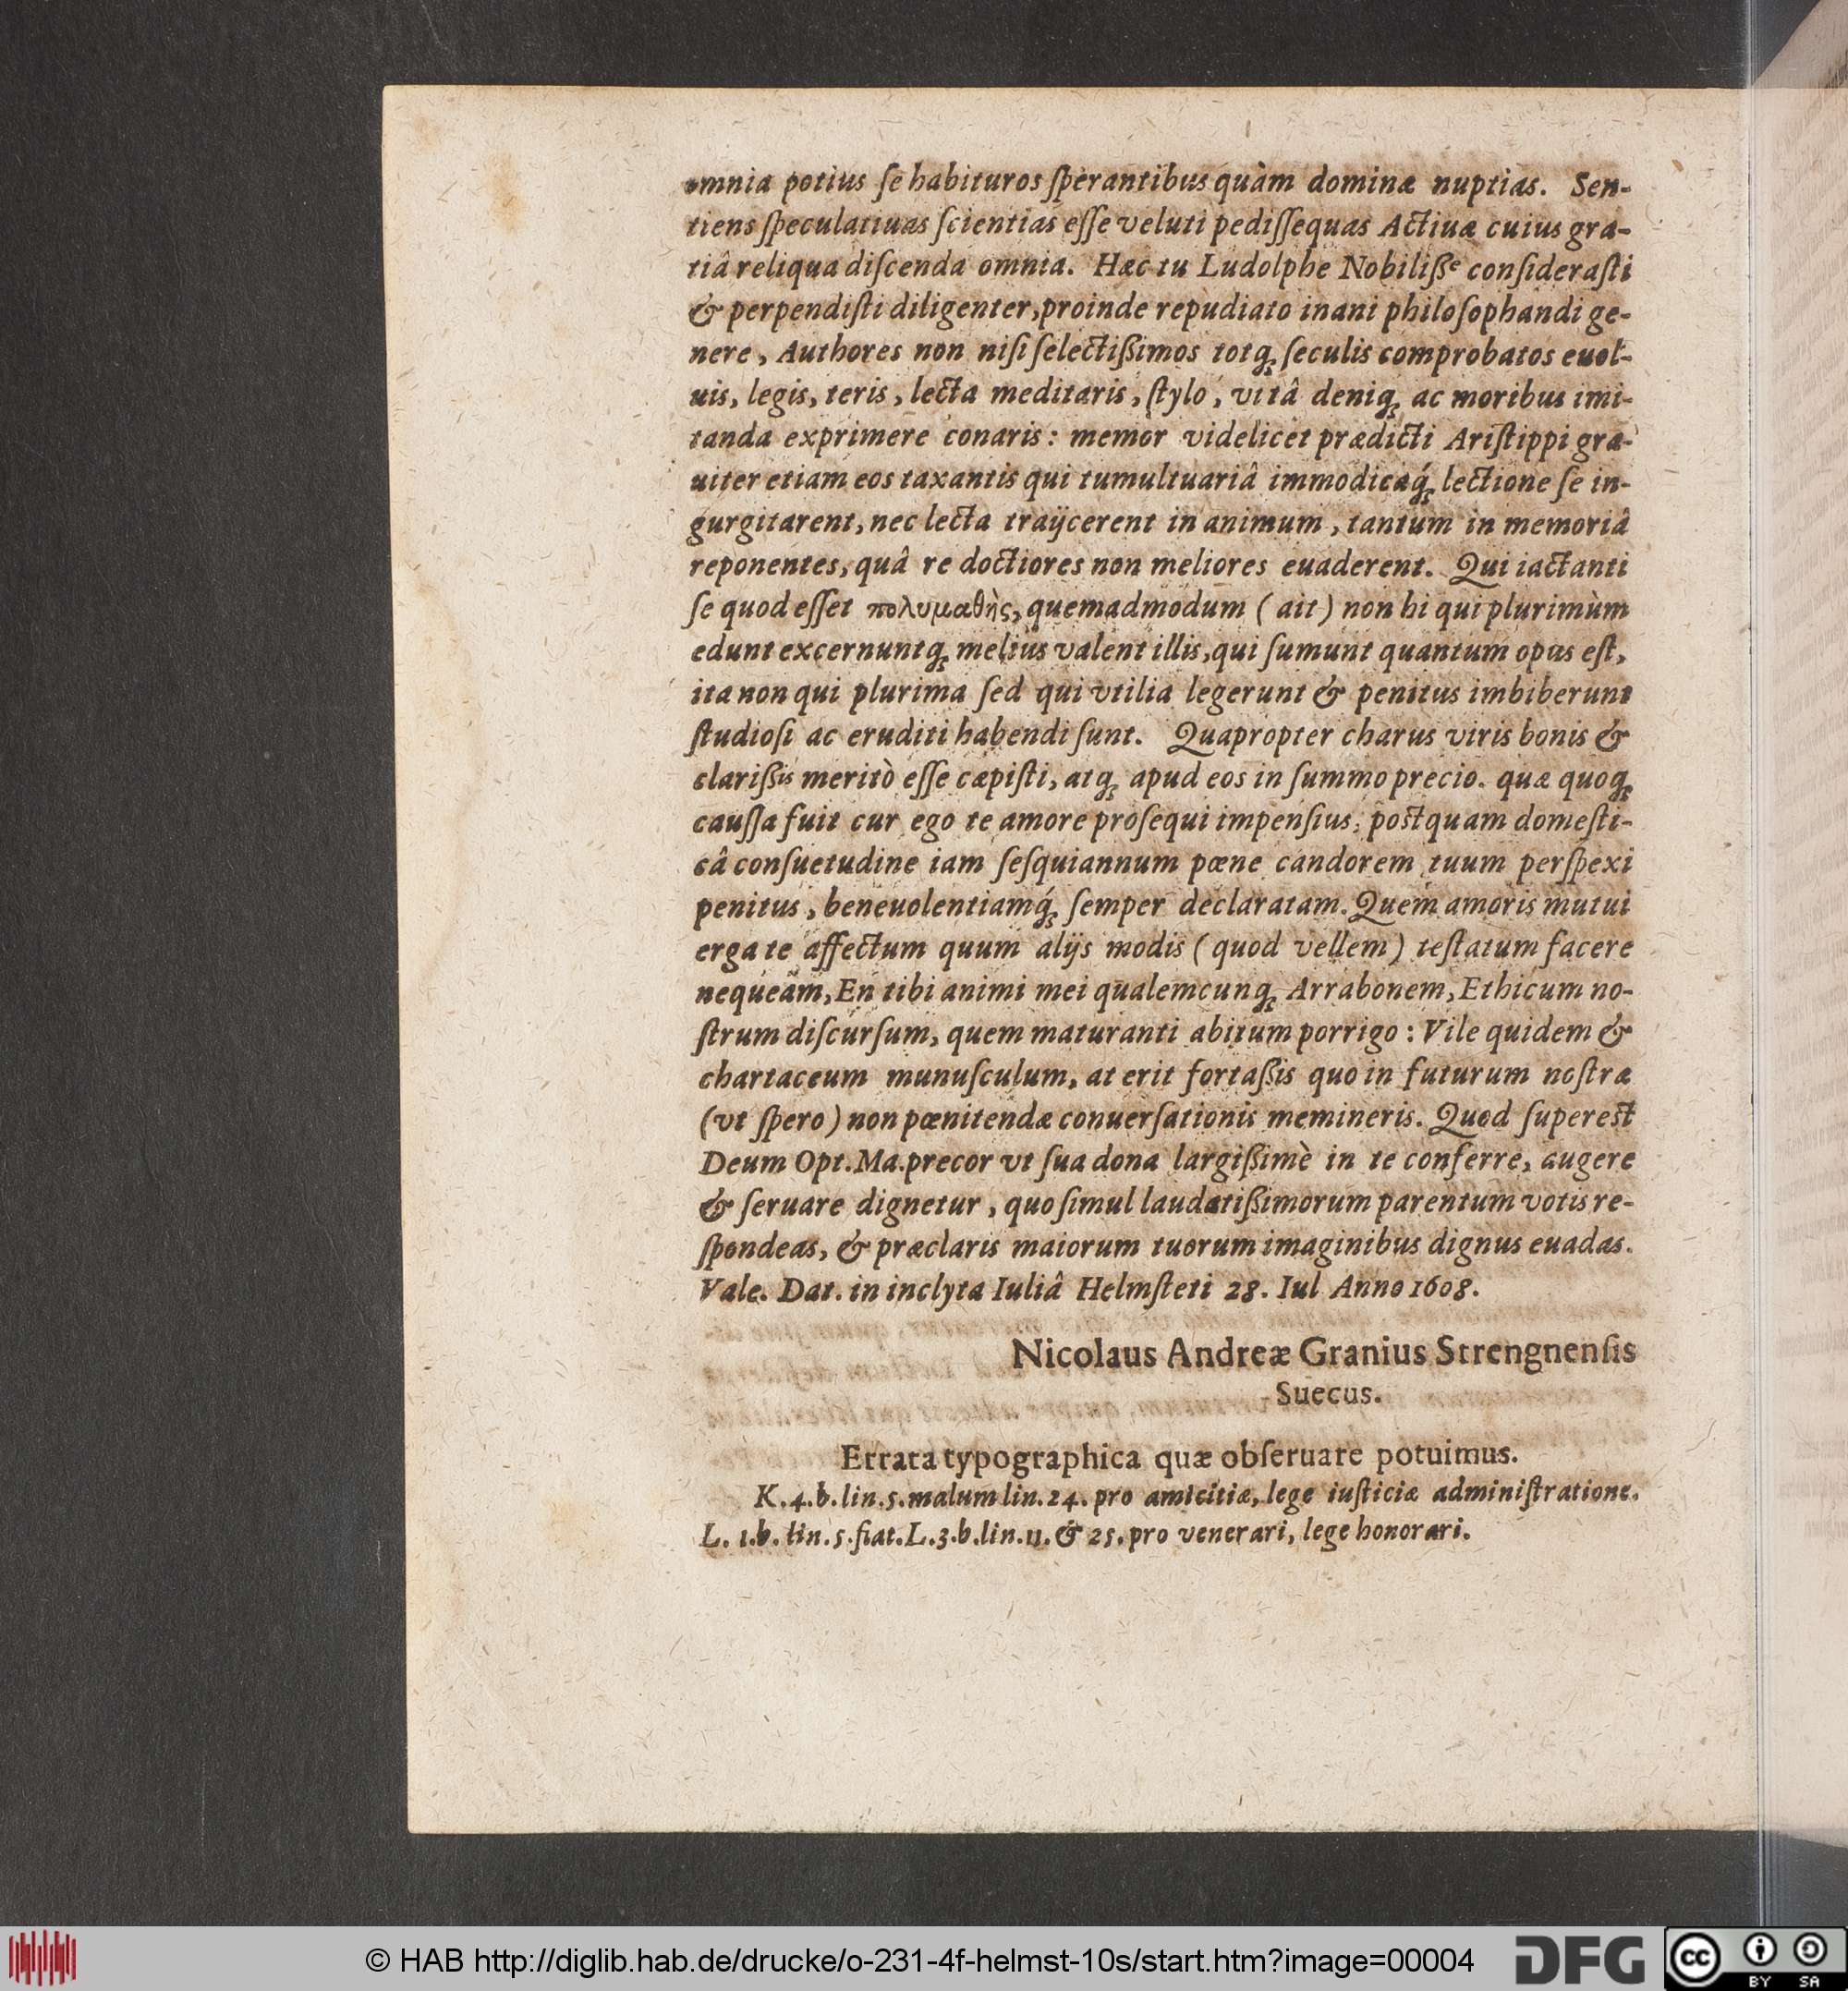 omnia potius ſe habituros ſperantibus quàm dominæ nuptias. Sen-
tiens ſpeculatiuas ſcientias eſſe veluti pediſſequas Actiuæ cuius gra-
tiâ reliqua diſcenda omnia. Hæc tu Ludolphe Nobilißᵉ conſideraſti
& perpendiſti diligenter, proinde repudiato inani philoſophandi ge-
nere, Authores non niſi ſelectißimos totq́; ſeculis comprobatos euol-
uis, legis, teris, lecta meditaris, ſtylo, vitâ deniq; ac moribus imi-
tanda exprimere conaris: memor videlicet prædicti Ariſtippi gra-
uiter etiam eos taxantis qui tumultuariâ immodicaq́; lectione ſe in-
gurgitarent, nec lecta traijcerent in animum, tantum in memoriâ
reponentes, quâ re doctiores non meliores euaderent. Qui iactanti
ſe quod eſſet πολυμαθὴς, quemadmodum (ait) non hi qui plurimùm
edunt excernuntq; melius valent illis, qui ſumunt quantum opus eſt,
ita non qui plurima ſed qui vtilia legerunt & penitus imbiberunt
ſtudioſi ac eruditi habendi ſunt. Quapropter charus viris bonis &
clarißis meritò eſſe cæpiſti, atq; apud eos in ſummo precio. quæ quoq;
cauſſa fuit cur ego te amore proſequi impenſius, poſtquam domeſti-
câ conſuetudine iam ſeſquiannum pœne candorem tuum perſpexi
penitus, beneuolentiamq́; ſemper declaratam. Quem amoris mutui
erga te affectum quum alijs modis (quod vellem) teſtatum facere
nequeam, En tibi animi mei qualemcunq; Arrabonem, Ethicum no-
ſtrum diſcurſum, quem maturanti abitum porrigo: Vile quidem &
chartaceum munuſculum, at erit fortaßis quo in futurum noſtræ
(vt ſpero) non pœnitendæ conuerſationis memineris. Quod ſupereſt
Deum Opt. Ma. precor vt ſua dona largißimè in te conferre, augere
& ſeruare dignetur, quo ſimul laudatißimorum parentum votis re-
ſpondeas, & præclaris maiorum tuorum imaginibus dignus euadas.
Vale. Dat. in inclyta Iuliâ Helmſteti 28. Iul Anno 1608.
Nicolaus Andreæ Granius Strengnenſis
Suecus.
Errata typographica quæ obſeruare potuimus.
K. 4. b. lin. 5. malum lin. 24. pro amicitiæ, lege iuſticiæ adminiſtratione.
L. 1. b. lin. 5. fiat. L. 3. b. lin. 11. & 25. pro venerari, lege honorari.
© HAB http://diglib.hab.de/drucke/o-231-4f-helmst-10s/start.htm?image=00004
DFG
cc
BY SA